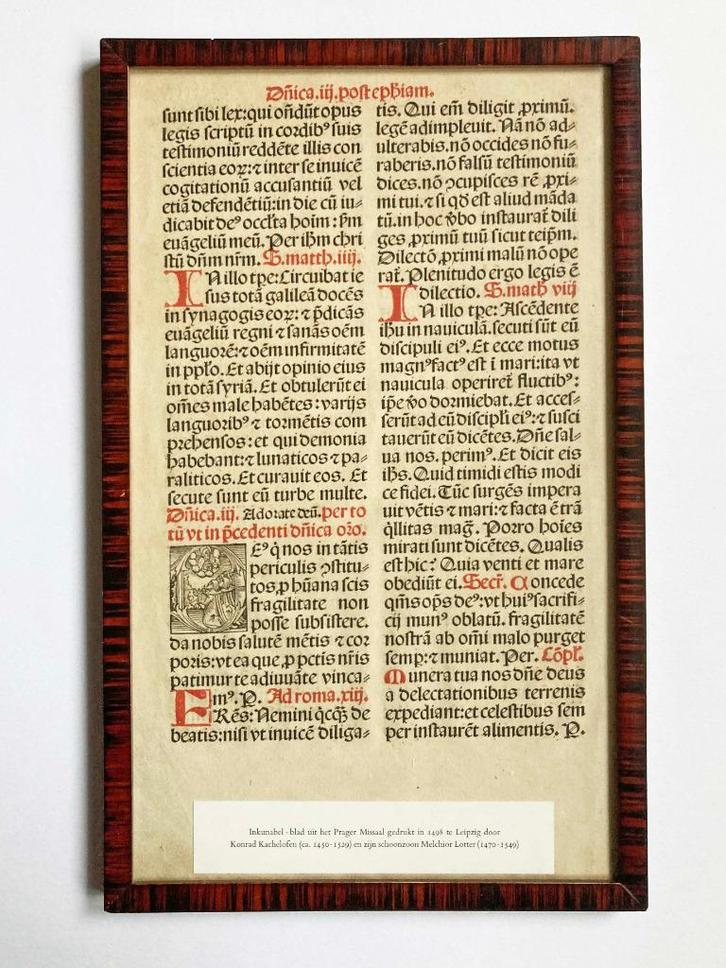 Dñica.iij.post ephiam.
sunt sibi lex:qui oñdũt opus
legis scriptũ in cordib⁹ suis
testimoniũ reddẽte illis con
scientia eoꝝ:⁊ inter se inuicẽ
cogitationũ accusantiũ vel
etiã defendẽtiũ:in die cũ iu⸗
dicabit de⁹ occĩta hoim : ꝑm
euãgeliũ meũ. Per ihm chri
stũ dñm nrm. S.matth.iiij.
IN illo tꝑe:Circuibat ie
sus totã galileã docẽs
in synagogis eoꝝ: ⁊ p̃dicãs
euãgeliũ regni ⁊ sanãs oẽm
languorẽ:⁊ oẽm infirmitatẽ
in ppło. Et abijt opinio eius
in totã syriã. Et obtulerũt ei
om̃es male habẽtes : varijs
languorib⁹ ⁊ tormẽtis com
prehensos: et qui demonia
habebant:⁊ lunaticos ⁊ pa⸗
raliticos. Et curauit eos. Et
secute sunt eũ turbe multe.
Dñica.iij. Adorate deũ. per to
tũ vt in p̃cedenti dñica oro.
DE⁹ q̇ nos in tãtis
periculis ꝯstitu⸗
tos,ꝓ hũana scis
fragilitate non
posse subsistere.
da nobis salutẽ mẽtis ⁊ cor
poris:vt ea que ,ꝓ pctis nr̃is
patimur te adiuuãte vinca⸗
m⁹. P. Ad roma.xiij.
FRẽs: Nemini q̇cq̃ꝫ de
beatis:nisi vt inuicẽ diliga⸗
tis. Qui em̃ diligit ꝓximũ.
legẽ adimpleuit. Nã nõ ad⸗
ulterabis.nõ occides nõ fu⸗
raberis.nõ falsũ testimoniũ
dices.nõ ꝯcupisces rẽ ꝓxi⸗
mi tui.⁊ si qď est aliud mãda
tũ.in hoc ꝟbo instaurat̃ dili
ges ꝓximũ tuũ sicut teip̃m.
Dilectõ ꝓximi malũ nõ ope
rat̃. Plenitudo ergo legis ẽ
dilectio. S.math viij
IN illo tꝑe: Ascẽdente
ihu in nauiculã.secuti sũt eũ
discipuli ei⁹. Et ecce motus
magn⁹ fact⁹ est ĩ mari:ita vt
nauicula operiret̃ fluctib⁹:
ip̃e ꝟo dormiebat. Et acces⸗
serũt ad eũ discipłi ei⁹:⁊ susci
tauerũt eũ dicẽtes. Dñe sal⸗
ua nos. perim⁹. Et dicit eis
ihs. Quid timidi estis modi
ce fidei. Tũc surgẽs impera
uit vẽtis ⁊ mari:⁊ facta ẽ trã
q̇llitas mag̃. Porro hoĩes
mirati sunt dicẽtes. Qualis
est hic? Quia venti et mare
obediũt ei. Secr̃. Concede
qm̃s op̃s de⁹:vt hui⁹ sacrifi⸗
cij mun⁹ oblatũ. fragilitatẽ
nostrã ab om̃i malo purget
semp:⁊ muniat. Per. Cõpl.
Munera tua nos dñe deus
a delectationibus terrenis
expediant:et celestibus sem
per instaurẽt alimentis. P.
Inkunabel - blad uit het Prager Missaal gedrukt in 1498 te Leipzig door
Konrad Kachelofen (ca. 1450-1529) en zijn schoonzoon Melchior Lotter (1470-1549)